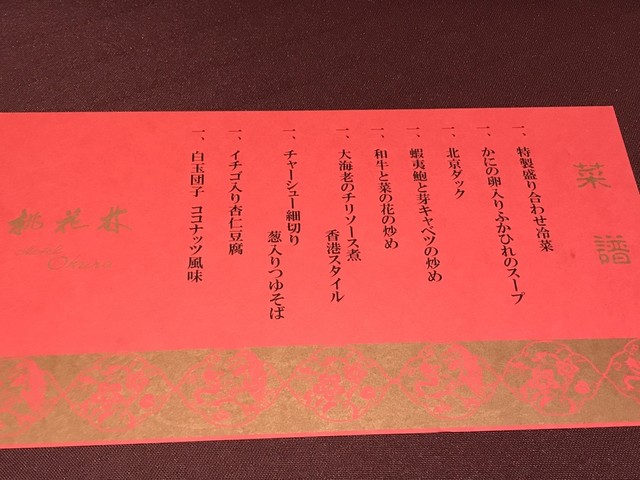 菜譜
一、特製盛り合わせ冷菜
一、かにの卵入りふかひれのスープ
一、北京ダック
一、蝦夷鮑と芽キャベツの炒め
一、和牛と菜の花の炒め
一、大海老のチリソース煮
香港スタイル
一、チャーシュー細切り
葱入りつゆそば
一、イチゴ入り杏仁豆腐
一、白玉団子 ココナッツ風味
桃花林
Okura